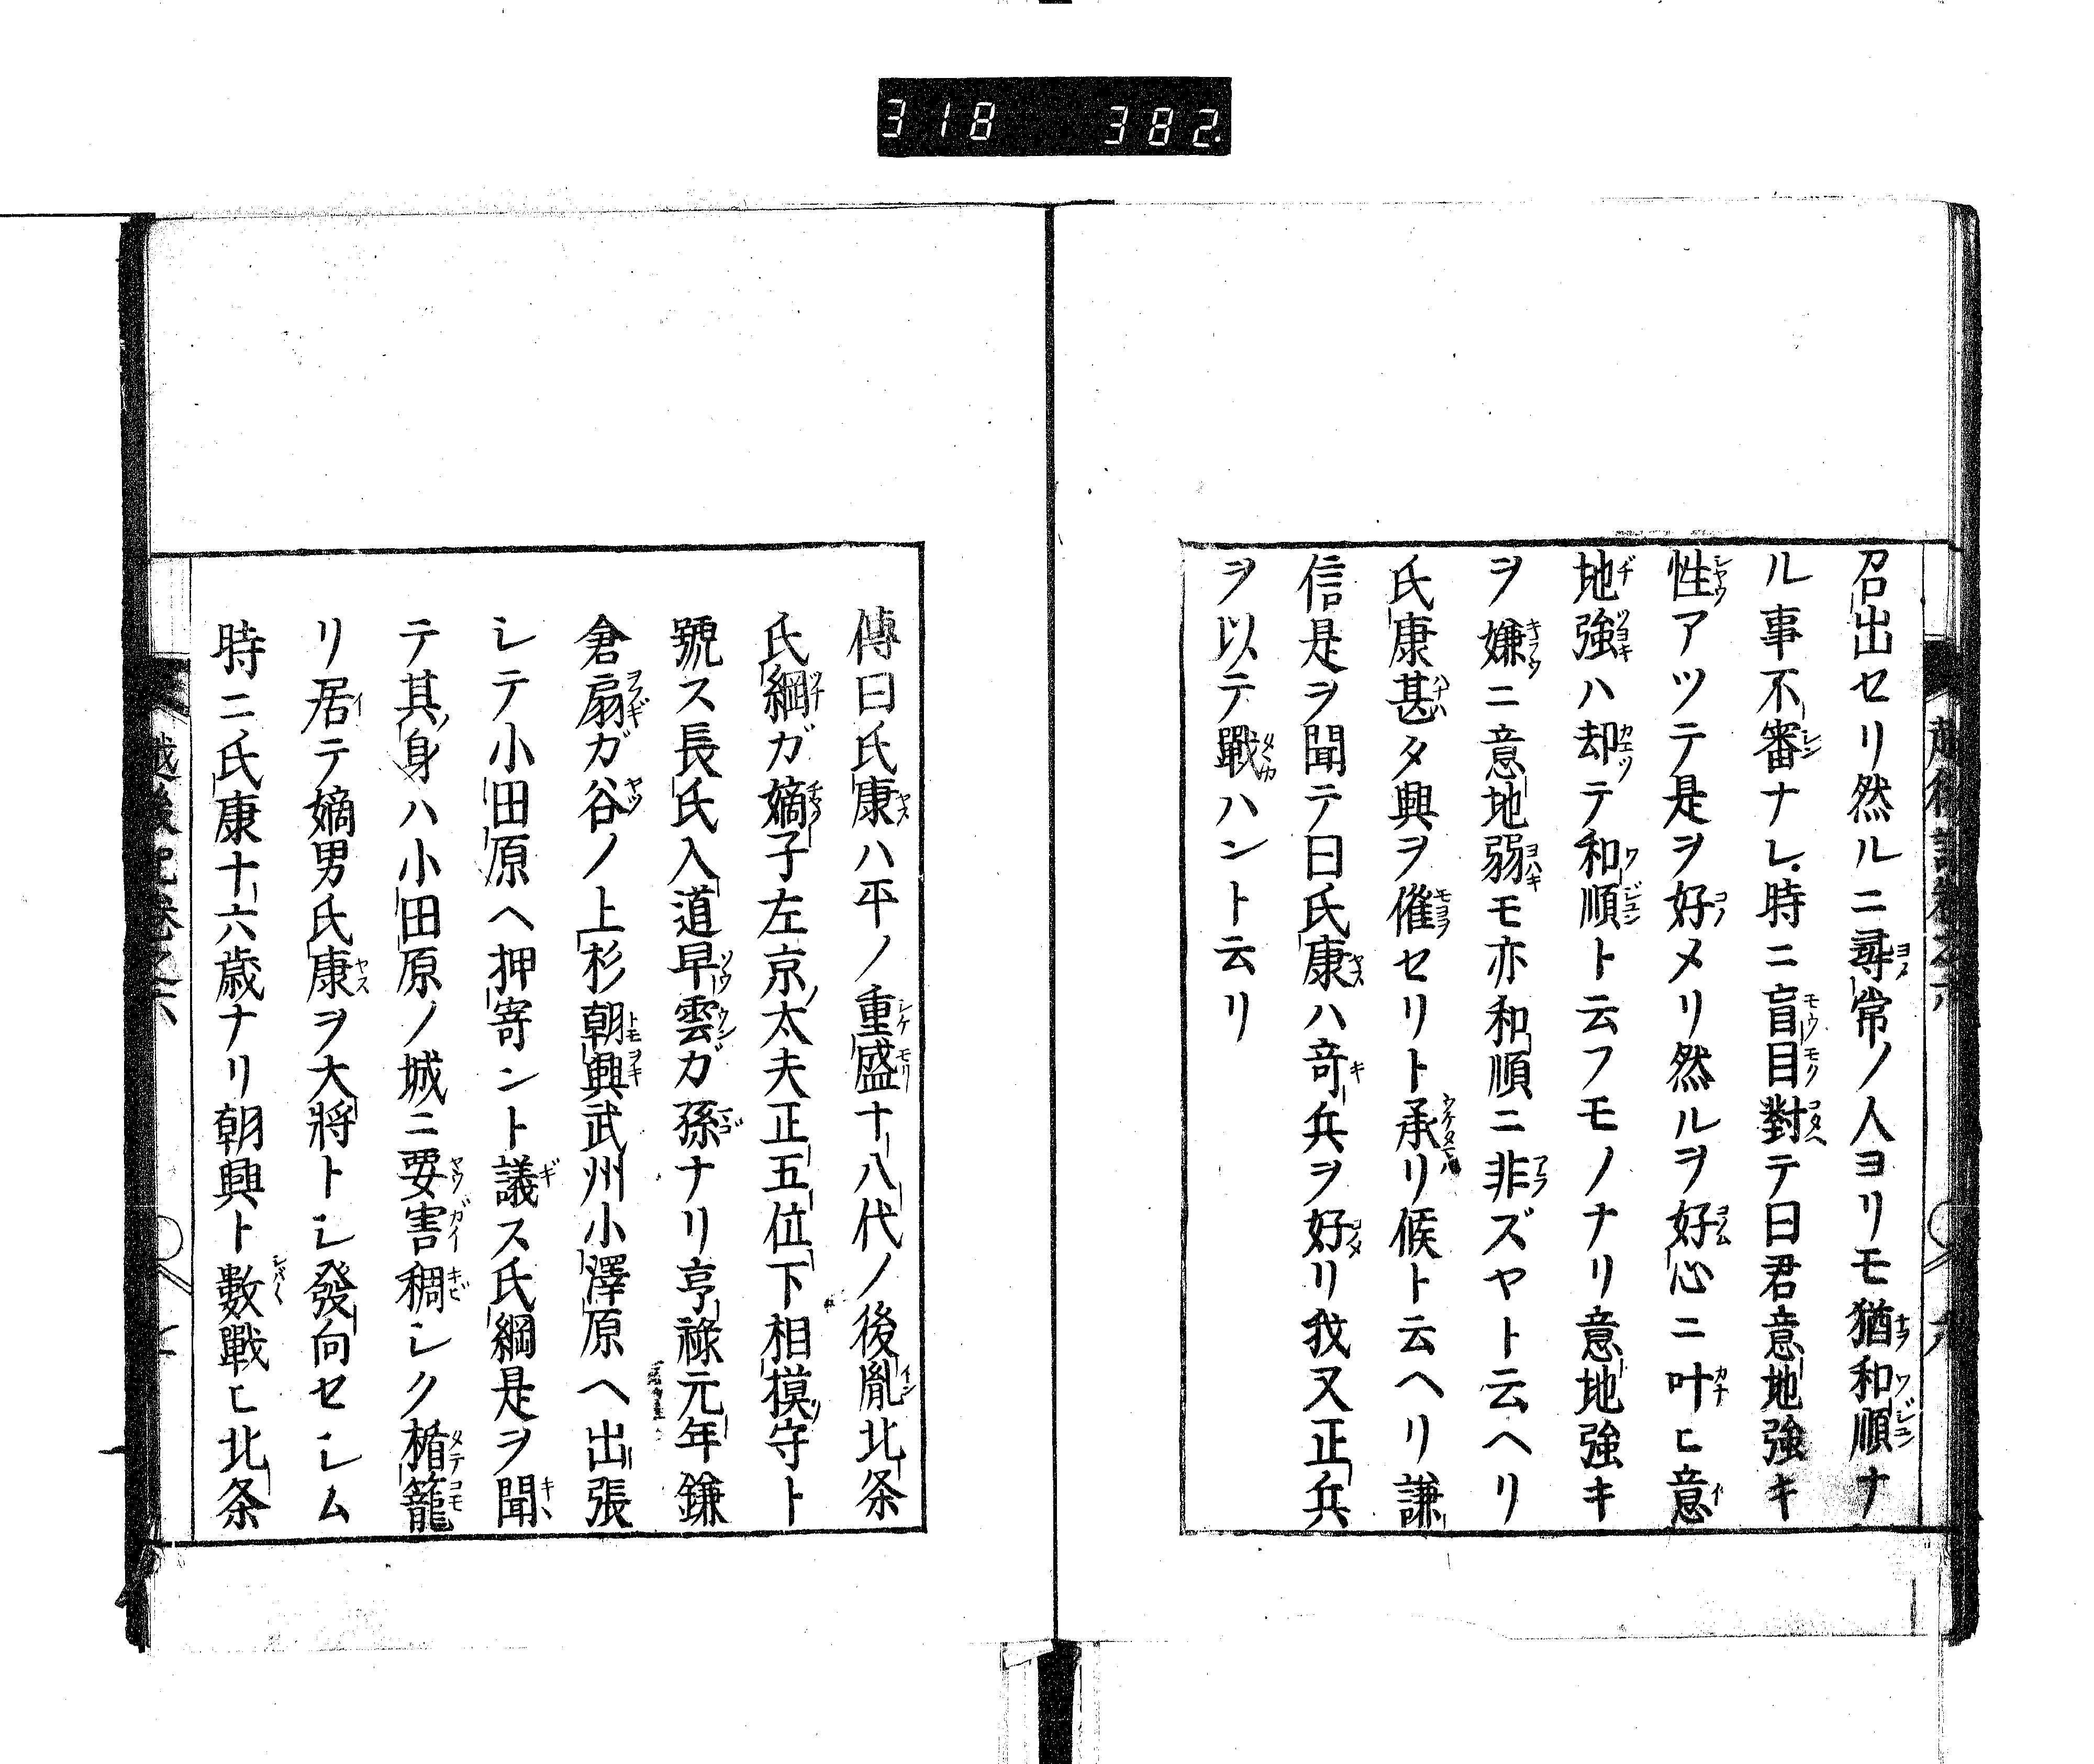 318 382.
召出セリ然ルニ尋常ノ人ヨリモ猶和順ナ
ル事不審ナシ時ニ盲目對テ曰君意地強キ
性アツテ是ヲ好メリ然ルヲ好心ニ叶ヒ意
地強ハ却テ和順ト云フモノナリ意地強キ
ヲ嫌ニ意地弱モ亦和順ニ非ズヤト云ヘリ
氏康甚タ興ヲ催セリト承リ候ト云ヘリ謙
信是ヲ聞テ曰氏康ハ竒兵ヲ好リ我又正兵
ヲ以テ戰ハント云リ
傳曰氏康ハ平ノ重盛十八代ノ後胤北条
氏綱ガ嫡子左京太夫正五位下相摸守ト
號ス長氏入道早雲ガ孫ナリ亨祿元年鎌
倉扇ガ谷ノ上杉朝興武州小澤原ヘ出張
シテ小田原ヘ押寄ント議ス氏綱是ヲ聞
テ其身ハ小田原ノ城ニ要害稠シク楯籠
リ居テ嫡男氏康ヲ大將トシ發向セシム
時ニ氏康十六歳ナリ朝興ト數戰ヒ北条
越後記卷之六